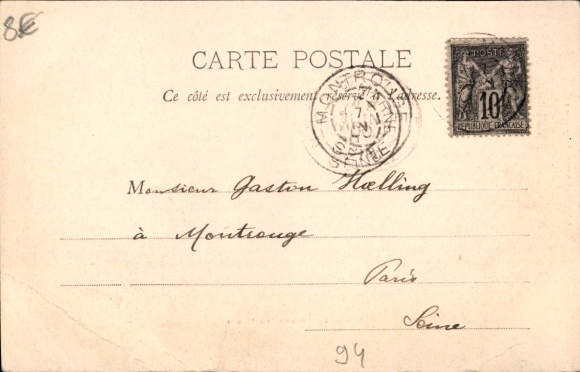 8€
CARTE POSTALE
POSTE
10
REPUBLIQUE FRANÇAISE
Ce côté est exclusivement réservé à l'adresse.
MONTROUGE
SEINE
Monsieur Gaston Hœlling
à Montrouge
Paris
Seine
94